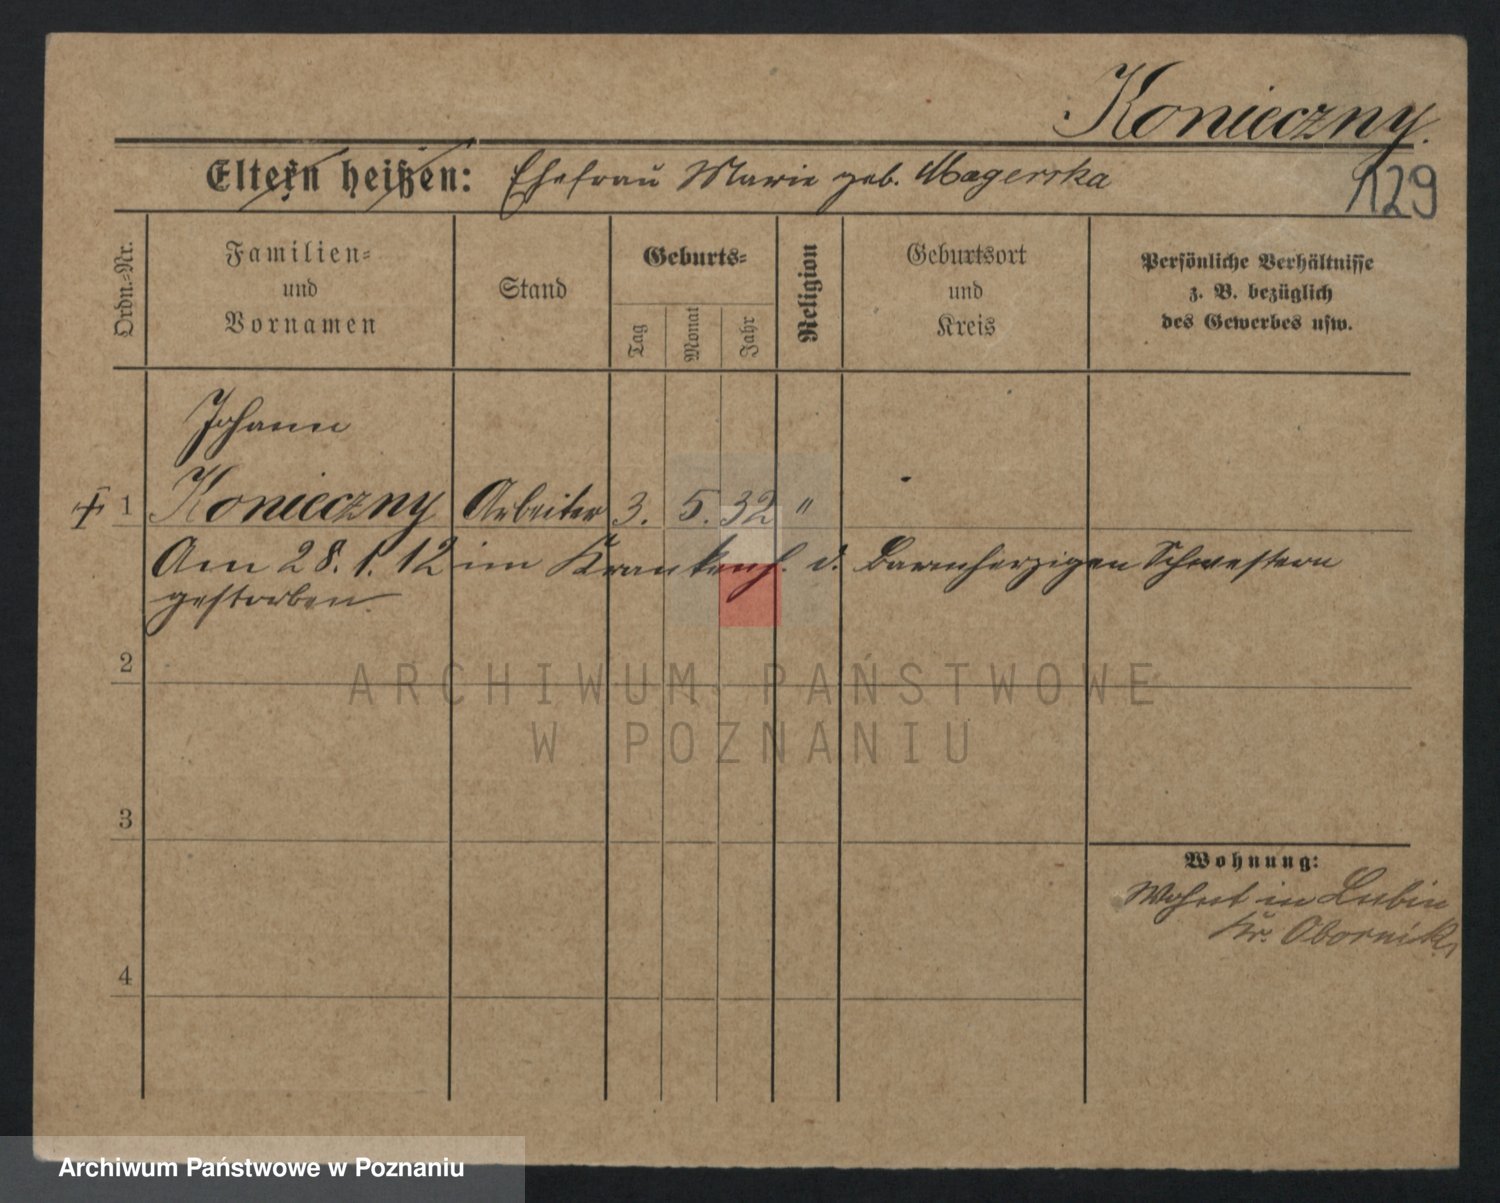 Konieczny.
Eltern heißen: Ehefrau Marie geb. Magerska
129
Ordn.-Nr.
Familien-
und
Vornamen
Stand
Geburts-
Tag
Monat
Jahr
Religion
Geburtsort
und
Kreis
Persönliche Verhältnisse
z. B. bezüglich
des Gewerbes usw.
Johann
1 Konieczny Arbeiter 3. 5. 32 "
Am 28. 1. 12 im Krankenh. d. Barmherzigen Schwestern
gestorben.
2
ARCHIWUM PAŃSTWOWE
W POZNANIU
3
Wohnung:
Wohnt in Lubin
Kr. Obornik
4
Archiwum Państwowe w Poznaniu